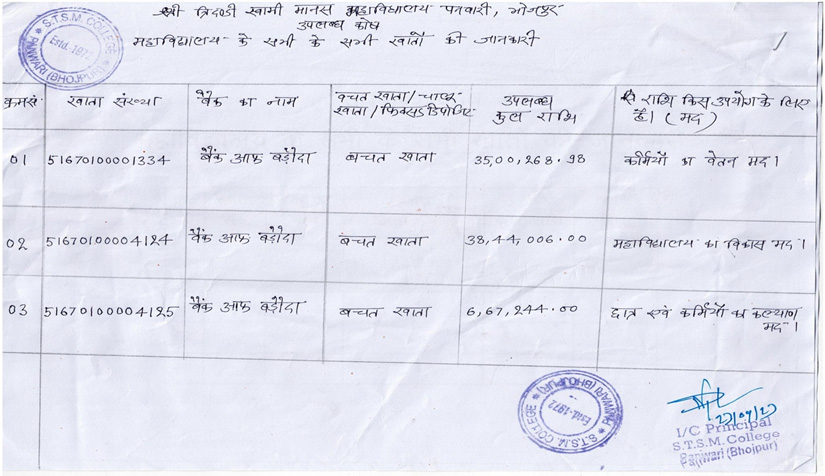 श्री त्रिदण्डी स्वामी मानस महाविद्यालय पनवारी, भोजपुर
उपलब्ध कोष
महाविद्यालय के सभी के सभी खातों की जानकारी
S.T.S.M. COLLEGE
Estd.-1972
PANWARI (BHOJPUR)
क्रमसं खाता संख्या बैंक का नाम बचत खाता/चालू खाता/फिक्सड डिपोजिट उपलब्ध कुल राशि राशि किस उपयोग के लिए है। (मद)
01 51670100001334 बैंक आफ बड़ौदा बचत खाता 35,00,268.98 कर्मियों का वेतन मद।
02 51670100004124 बैंक आफ बड़ौदा बचत खाता 38,44,006.00 महाविद्यालय का विकास मद।
03 51670100004125 बैंक आफ बड़ौदा बचत खाता 6,67,244.00 छात्र एवं कर्मियों का कल्याण मद।
S.T.S.M. COLLEGE
Estd.-1972
PANWARI (BHOJPUR)
I/C Principal
S.T.S.M. College
Panwari (Bhojpur)